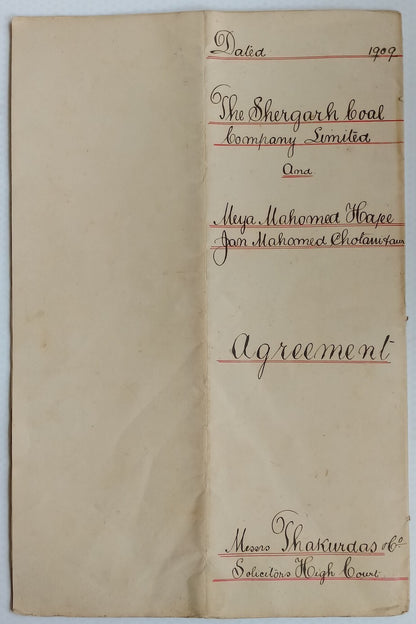 Dated 1909
The Shergarh Coal
Company Limited
And
Meya Mahomed Hajee
Jan Mahomed
Agreement
Messrs Thakurdas & Co
Solicitors High Court